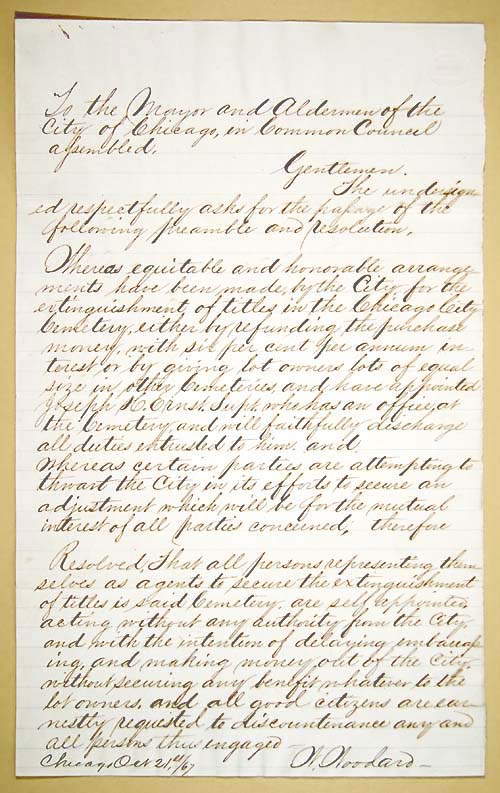 To the Mayor and Aldermen of the
City of Chicago, in Common Council
assembled.
Gentlemen.
The undersign
ed respectfully asks for the passage of the
following preamble and resolution.
Whereas equitable and honorable arrange
ments have been made, by the City, for the
extinguishment of titles in the Chicago City
Cemetery, either by refunding the purchase
money, with six per cent per annum in-
terest or by giving lot owners lots of equal
size in other Cemeteries, and have appointed
Joseph H. Ernst. Supt. who has an office, at
the Cemetery, and will faithfully discharge
all duties entrusted to him. and.
Whereas certain parties are attempting to
thwart the City in its efforts to secure an
adjustment which will be for the mutual
interest of all parties concerned; therefore
Resolved, That all persons representing them
selves as agents to secure the extinguishment
of titles is said Cemetery. are self appointed
acting without any authority from the City,
and with the intention of delaying embarass
ing, and making money out of the City,
without securing any benefit whatever to the
lot owners, and all good citizens are ear
nestly requested to discountenance any and
all persons thus engaged—
Chicago Oct 21st/67 Woodard—